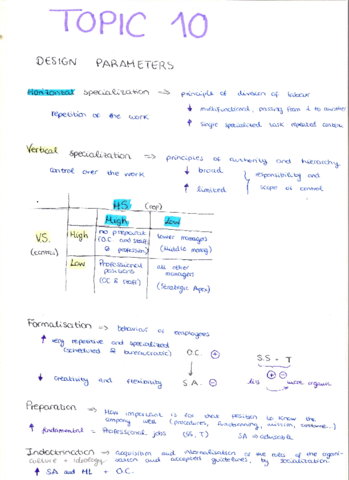 TOPIC 10
DESIGN PARAMETERS
Horizontal specialization => principle of division of labour
repetition of the work
↓ multifunctional, passing from 1 to another
↑ simple specialized task repeated
Vertical specialization => principles of authority and hierarchy
control over the work
↓ broad
↑ limited
responsibility and
scope of control
HS (rep)
High Low
V.S. (control)
High
no preparat
(O.C. and staff
& profession)
lower managers
(Middle manag)
Low
Professional
positions
(OC & staff)
all other
managers
(Strategic Apex)
Formalisation => behaviour of employees
↑ very repetitive and specialized
(scheduled & bureaucratic) O.C. +
S.S + T
↓ creativity and flexibility S.A. -
+ -
less more organic
Preparation => How important is for that position to know the
company well (procedures, functioning, mission, custome...)
↑ fundamental = Professional jobs (SS, T) SA => advisable
Indoctrination => acquisition and internalisation of the rules of the organi-
culture + ideology and accepted guidelines, by socialization
↑ SA and ML + O.C.